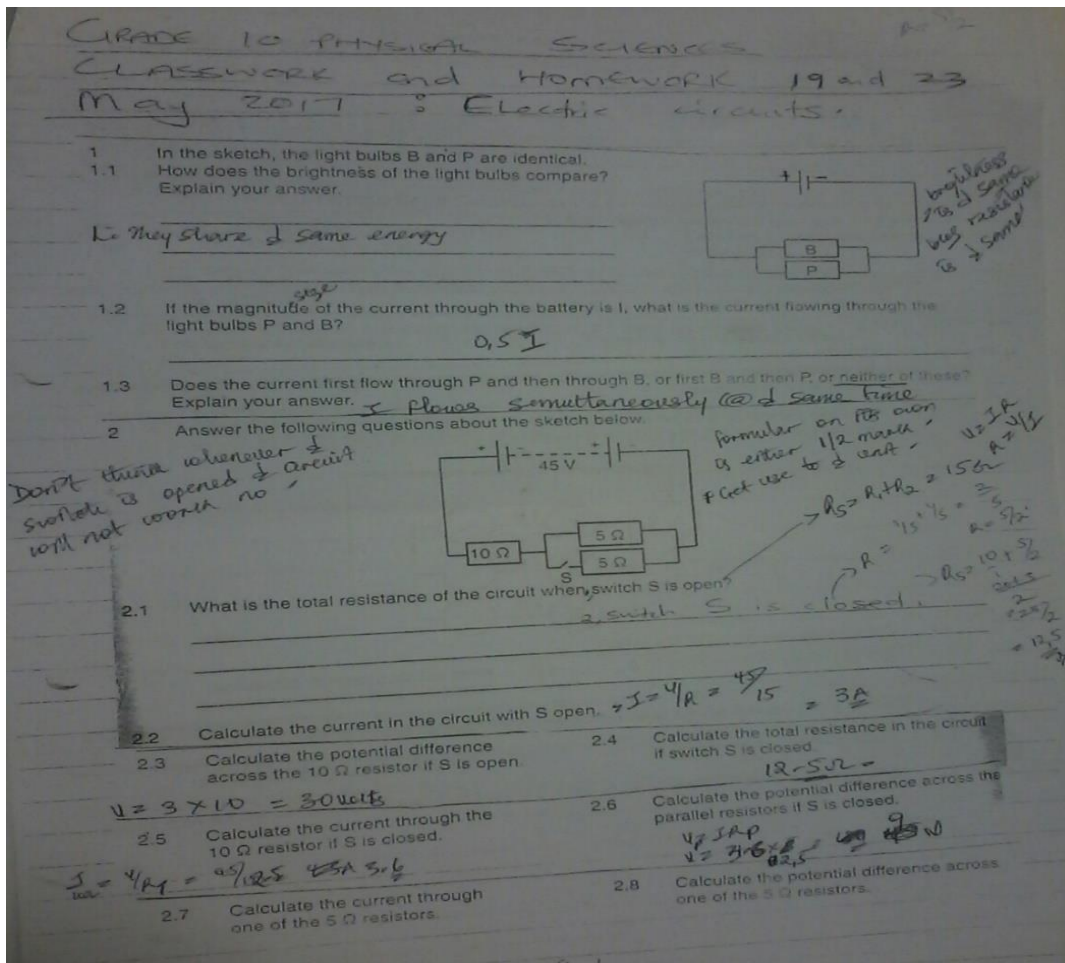 GRADE 10 PHYSICAL SCIENCES
CLASSWORK and HOMEWORK 19 and 23
May 2017 : Electric circuits.
1 In the sketch, the light bulbs B and P are identical.
1.1 How does the brightness of the light bulbs compare?
Explain your answer.
+ -
B
P
brightness
is d same
bcos resistance
is d same
they share d same energy
size
1.2 If the magnitude of the current through the battery is I, what is the current flowing through the
light bulbs P and B?
0,5 I
1.3 Does the current first flow through P and then through B, or first B and then P, or neither of these?
Explain your answer. I flows simultaneously @ d same time
2 Answer the following questions about the sketch below.
Don't think whenever d
switch is opened d circuit
will not work no
+ - + -
45 V
10 Ω
5 Ω
5 Ω
S
formular on its own
is either 1/2 mark
* Get use to d unit
V = IR
R = V/I
Rs = R1 + R2 = 15Ω
R = 1/5 + 1/5 = 2/5
R = 5/2
Rs = 10 + 5/2
= 25/2
= 12,5
2.1 What is the total resistance of the circuit when switch S is open?
2, switch S is closed.
2.2 Calculate the current in the circuit with S open. I = V/R = 45/15 = 3A
2.3 Calculate the potential difference
across the 10 Ω resistor if S is open
V = 3 × 10 = 30 volts
2.4 Calculate the total resistance in the circuit
if switch S is closed
12-5Ω
2.5 Calculate the current through the
10 Ω resistor if S is closed.
= V/RT = 45/12.5 3.6
2.6 Calculate the potential difference across the
parallel resistors if S is closed.
V = IRp
V = 3.6 × 2,5 = 9 V
2.7 Calculate the current through
one of the 5 Ω resistors.
2.8 Calculate the potential difference across
one of the 5 Ω resistors.